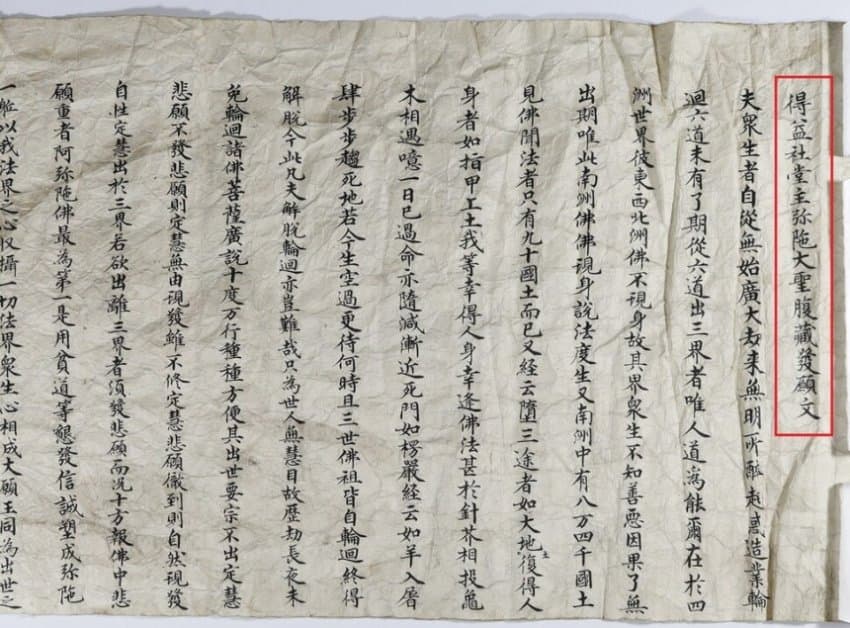 得益社堂主弥陁大聖腹藏發願文
夫衆生者自從無始廣大劫来無明所醉起惑造業輪
迴六道未有了期從六道出三界者唯人道爲能爾在於四
洲世界彼東西北洲佛不現身故其界衆生不知善惡因果了無
出期唯此南洲佛佛現身說法度生又南洲中有八万四千國土
見佛聞法者只有九十國土而已又経云墮三途者如大地土復得人
身者如指甲上土我等幸得人身幸逢佛法甚於針芥相投龜
木相遇噫一日已過命亦隨減漸近死門如楞嚴経云如羊入屠
肆步步趍死地若今生空過更待何時且三世佛祖皆自輪迴終得
解脫今此凡夫解脫輪迴亦豈難哉只為世人無慧目故歷劫長夜未
免輪迴諸佛菩薩廣說十度万行種種方便其出世要宗不出定慧
悲願不發悲願則定慧無由現發雖不修定慧悲願儆到則自然現發
自性定慧出於三界若欲出離三界者須發悲願而况十方報佛中悲
願重者阿弥陁佛最為第一是用貧道等懇發信誠塑成弥陁
一軀以我法界之心収攝一切法界衆生心相成大願王同為出世之